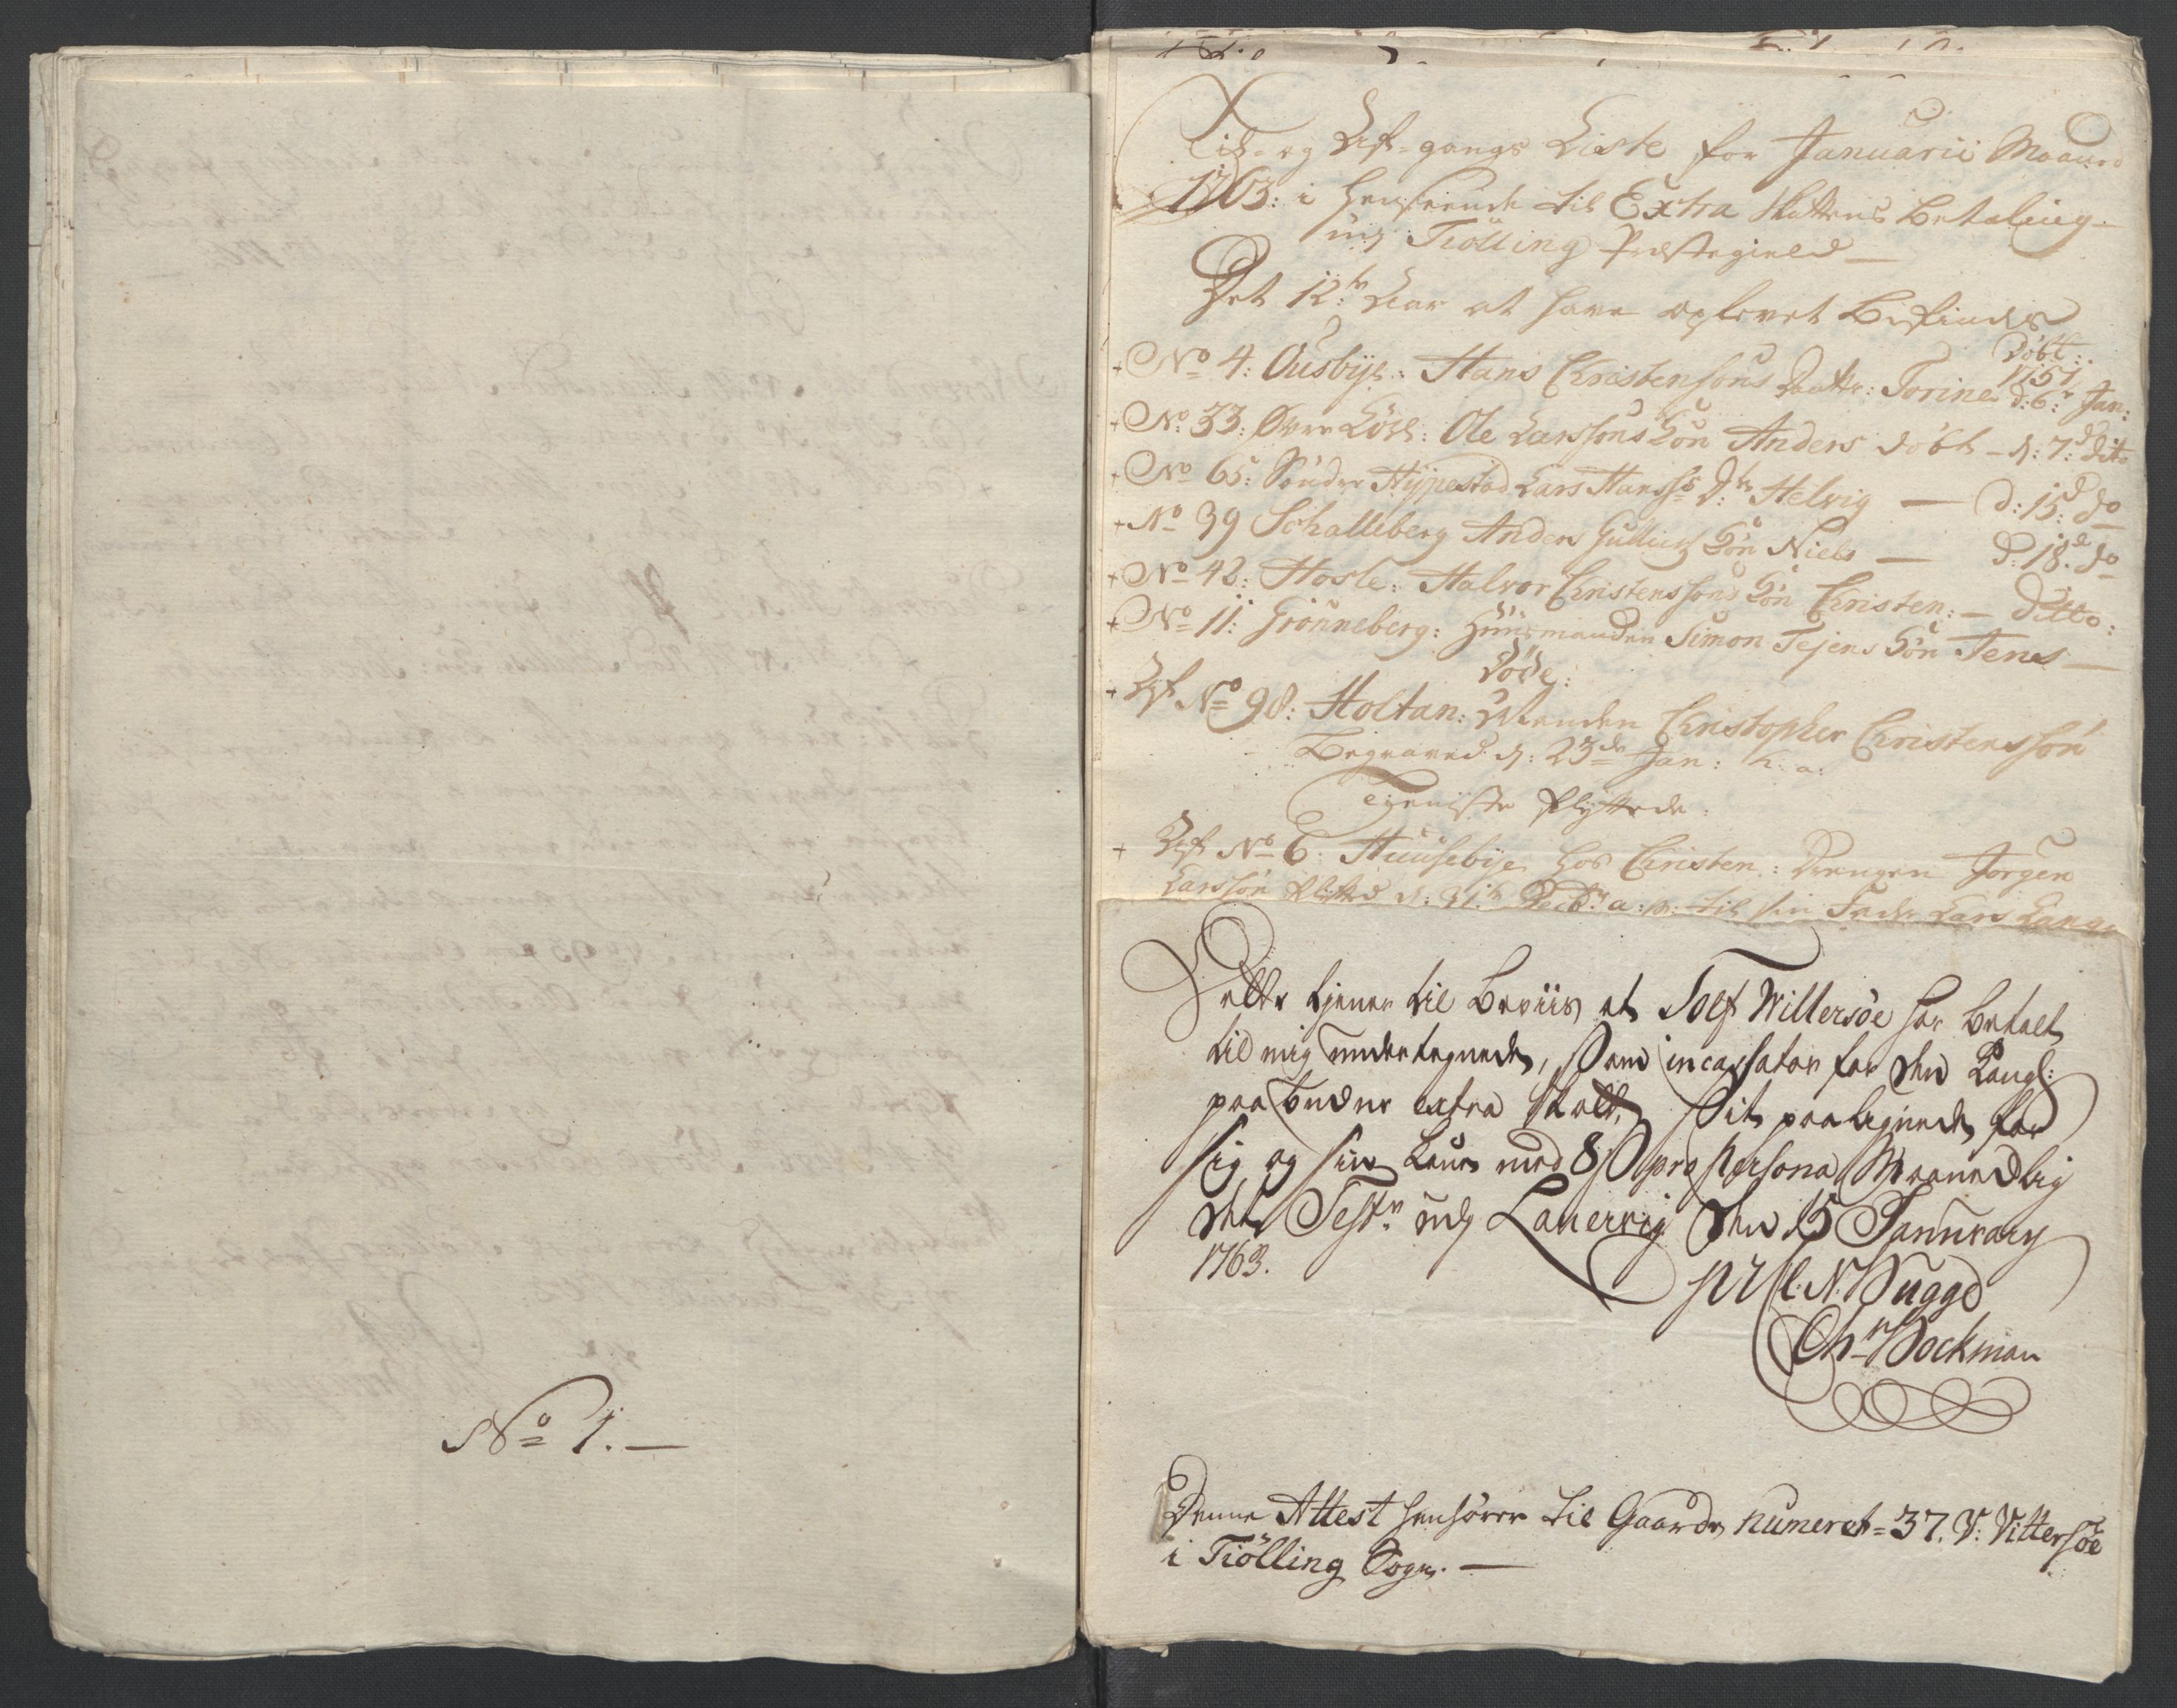 No 1. —
Til- og Af-gangs Liste for Januarii Maaned
1763: i henseende til Extra Skattens Betaling
udj Tiölling Præstegield —
Det 12te Aar at have oplevet Befindes
Döbt:
No 4: Ausbye: Hans Christensöns Datter: Torine 1751 d: 6te Jan:
No: 33: Øvre Löve: Ole Larssöns Sön Anders döbt - d: 7: dito
No 65: Söndre Hÿpestad Lars Hanss: Dtr Helvig — d: 15: do
No 39 Schalleberg Anders Gulliks Sön Niels — d: 18: do
No 42: Hosle: Halvor Christenssöns Sön Christen: — ditto:
No 11: Grönneberg: Huusmanden Simon Tejens Sön Jens —
Döde:
Af No 98: Holtan: Manden Christopher Christenssön
Begraved d: 23de Jan: h: a:
Tieniste flyttede:
Af No 6: Huusebye hos Christen: Drengen Jörgen
Larssön flytted d: 31te Decbr: a: p: til sin Fader Lars Lange
Dette tjener til Beviis at Tolf Willersöe har betalt
til mig undertegnede, som incassator for den Kongl:
paabudne extra Skatt, sit paalignede for
sig og sine Leuer med 8 s pro persona Maanedlig
det Test: udj Lauervig den 15 January
1763.
pr Sl. N: Bugge
Chr Bockman
Denne Attest henhörer til Gaards numeret = 37. V: Vittersöe
i Tiölling Sogn. —